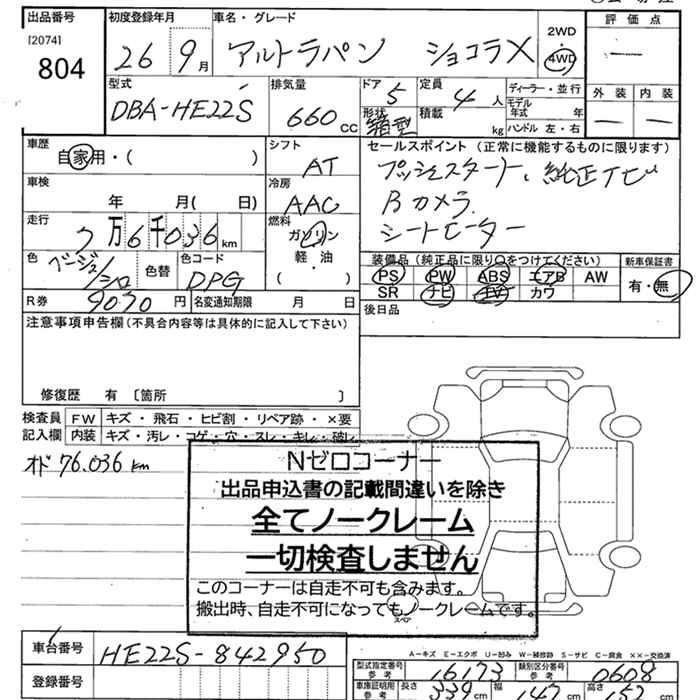 出品番号 初度登録年月 車名・グレード 評価点
[2074] 804 26 9月 アルトラパン ショコラX 2WD・4WD
型式 排気量 ドア 定員 ディーラー・並行 外装 内装
DBA-HE22S 660 CC 5 4人 モデル年式 年
形状 箱型 積載 kg ハンドル 左・右
車歴 シフト セールスポイント(正常に機能するものに限ります)
自家用・( ) AT プッシュスタート、純正ナビ
車検 冷房 Bカメラ
年 月( 日) AAC シートヒーター
走行 燃料
7万6千036km ガソリン
色 色替 色コード 軽・油 装備品(純正品に限り○をつけてください) 新車保証書
ベージュ/シロ DPG ( ) PS PW ABS エアB AW 有・無
R券 9030円 名変通知期限 月 日 SR ナビ TV カワ
注意事項申告欄(不具合内容等は具体的に記入して下さい) 後日品
修復歴 有〔箇所 〕
検査員 FW キズ・飛石・ヒビ割・リペア跡・×要
記入欄 内装 キズ・汚レ・コゲ・穴・スレ・キレ・破レ
オド 76.036 km
Nゼロコーナー
出品申込書の記載間違いを除き
全てノークレーム
一切検査しません
このコーナーは自走不可も含みます。
搬出時、自走不可になってもノークレームです。
スペア
A－キズ E－エクボ U－凹み W－補修跡 S－サビ C－腐食 ××－交換済
車台番号 HE22S-842950 型式指定番号 参考 16173 類別区分番号 参考 0608
登録番号 車庫証明用 参考 長さ 339cm 幅 147cm 高さ 152cm